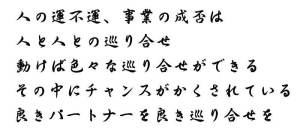 人の運不運、事業の成否は
人と人との巡り合せ
動けば色々な巡り合せができる
その中にチャンスがかくされている
良きパートナーを良き巡り合せを